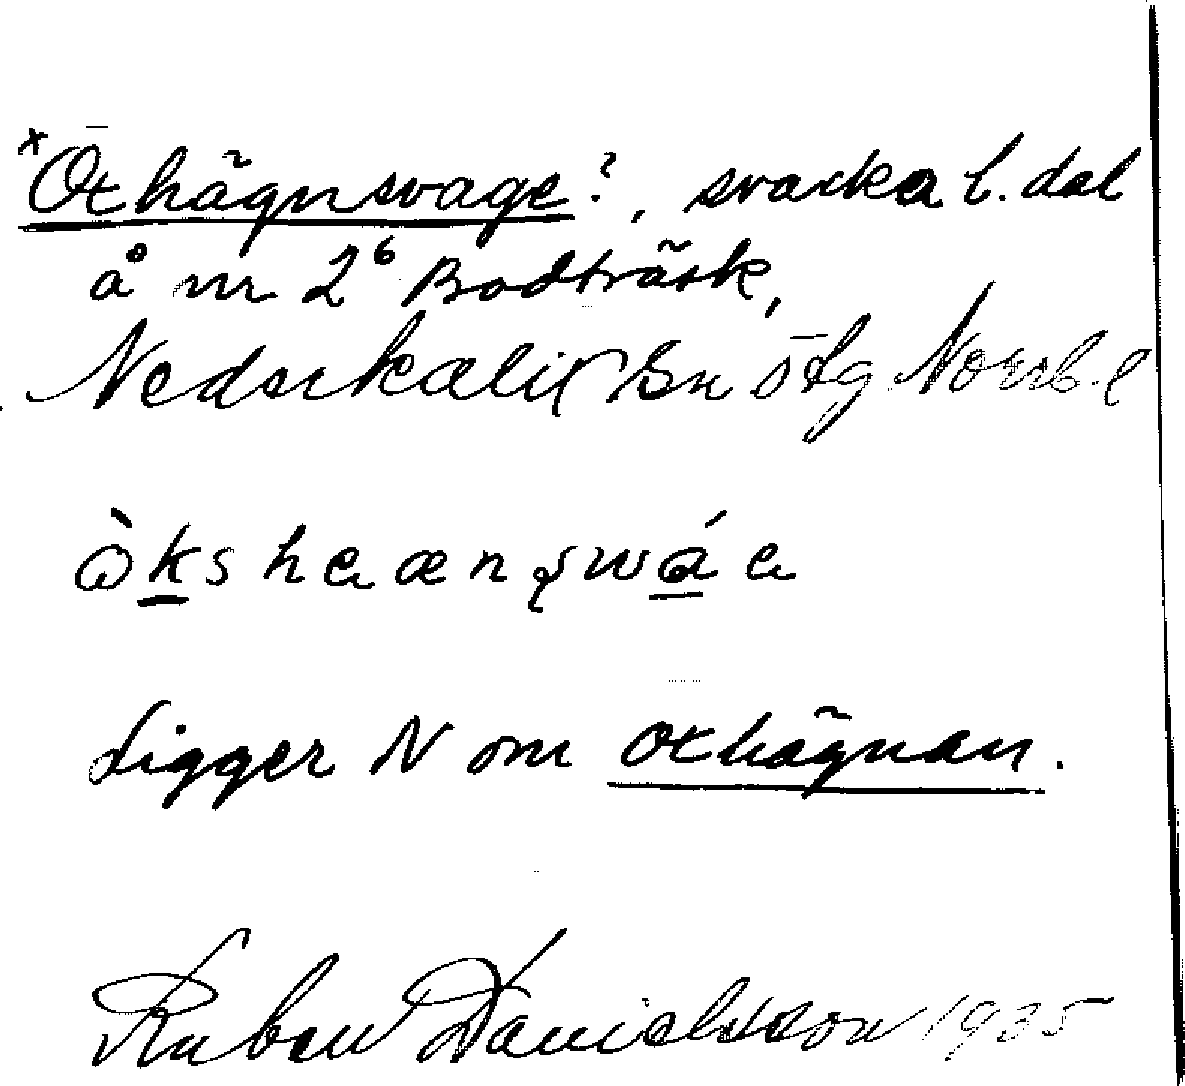 *Oxhägnsvage?, svacka l. dal
å nr 2⁶ Bodträsk,
Nederkalix sn ö stg Norrb. l
Ligger N om Oxhägnan.
Ruben Danielsson 1935